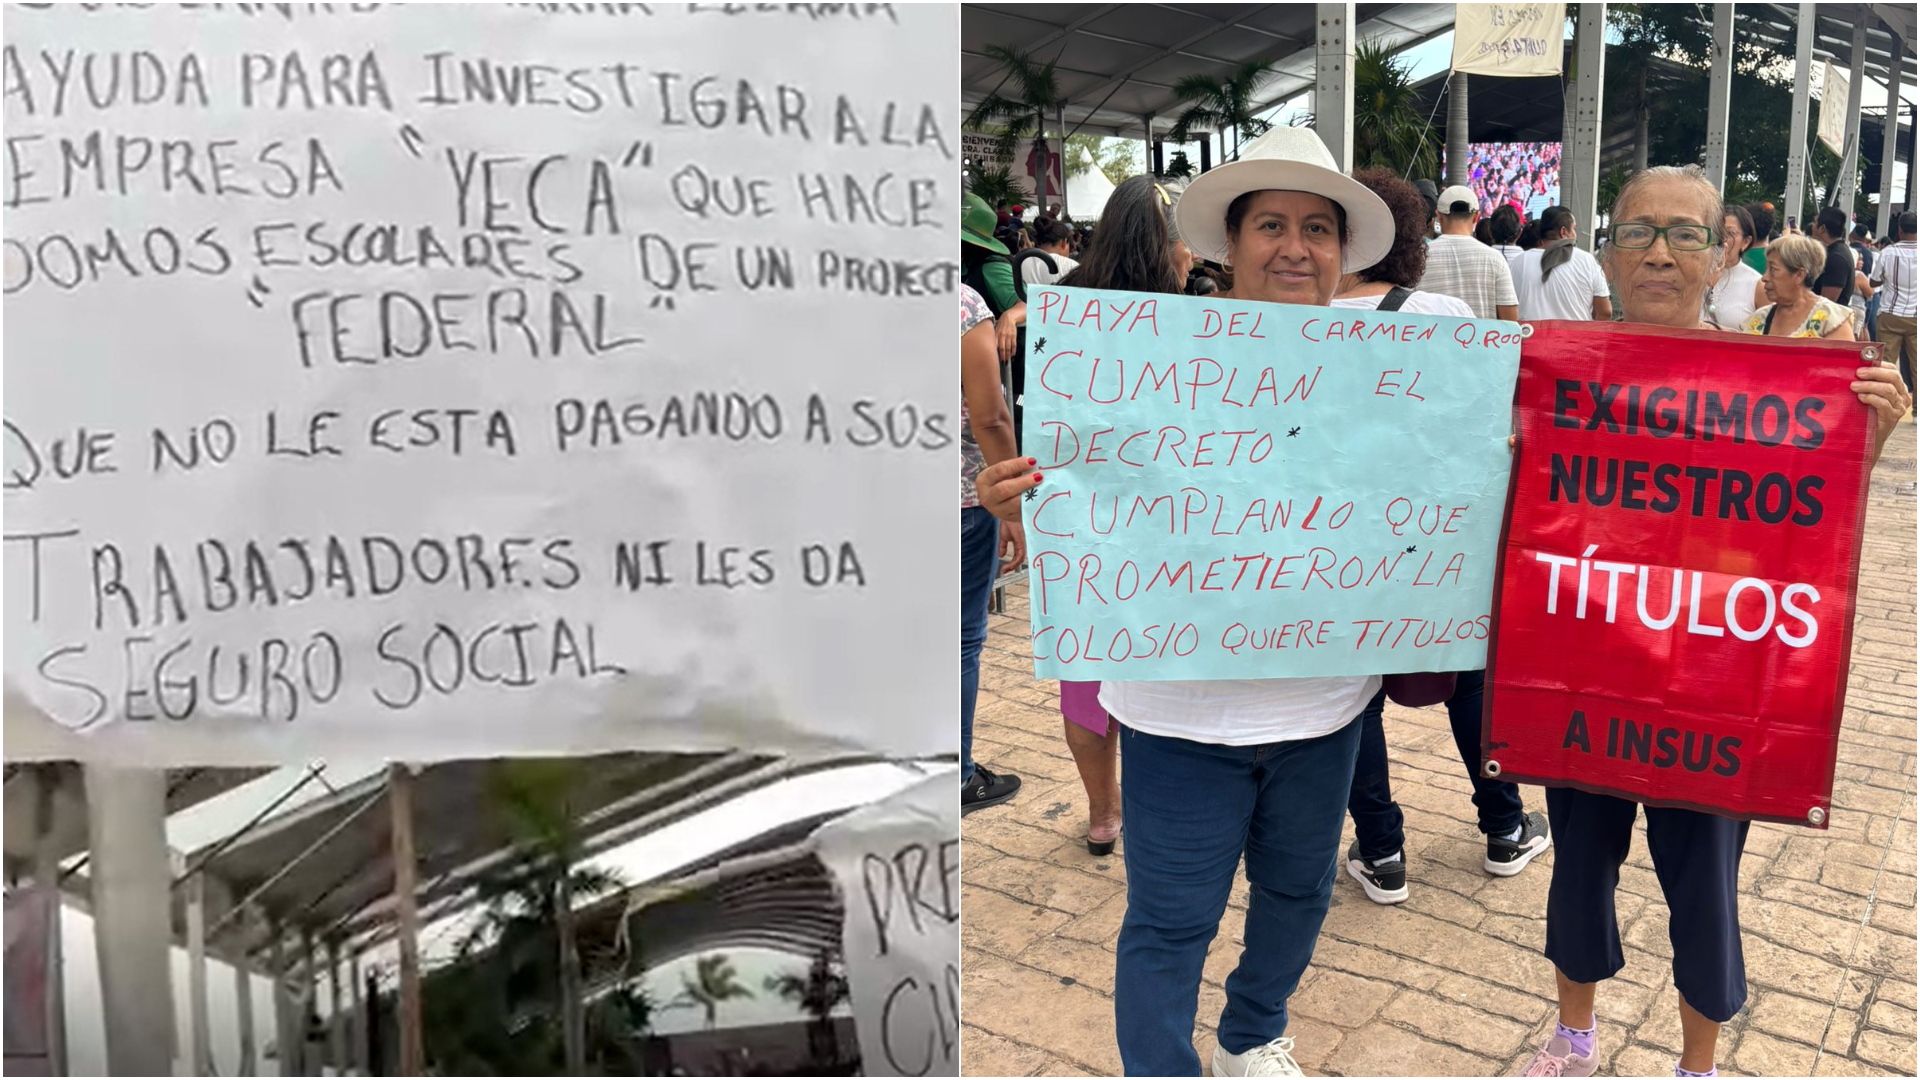 AYUDA PARA INVESTIGAR A LA
EMPRESA "YECA" QUE HACE
DOMOS ESCOLARES DE UN PROJECT
"FEDERAL"
QUE NO LE ESTA PAGANDO A SUS
TRABAJADORES NI LES DA
SEGURO SOCIAL
PRE
PLAYA DEL CARMEN Q.ROO
*CUMPLAN EL
DECRETO*
*CUMPLANLO QUE
PROMETIERON* LA
COLOSIO QUIERE TITULOS
EXIGIMOS
NUESTROS
TÍTULOS
A INSUS